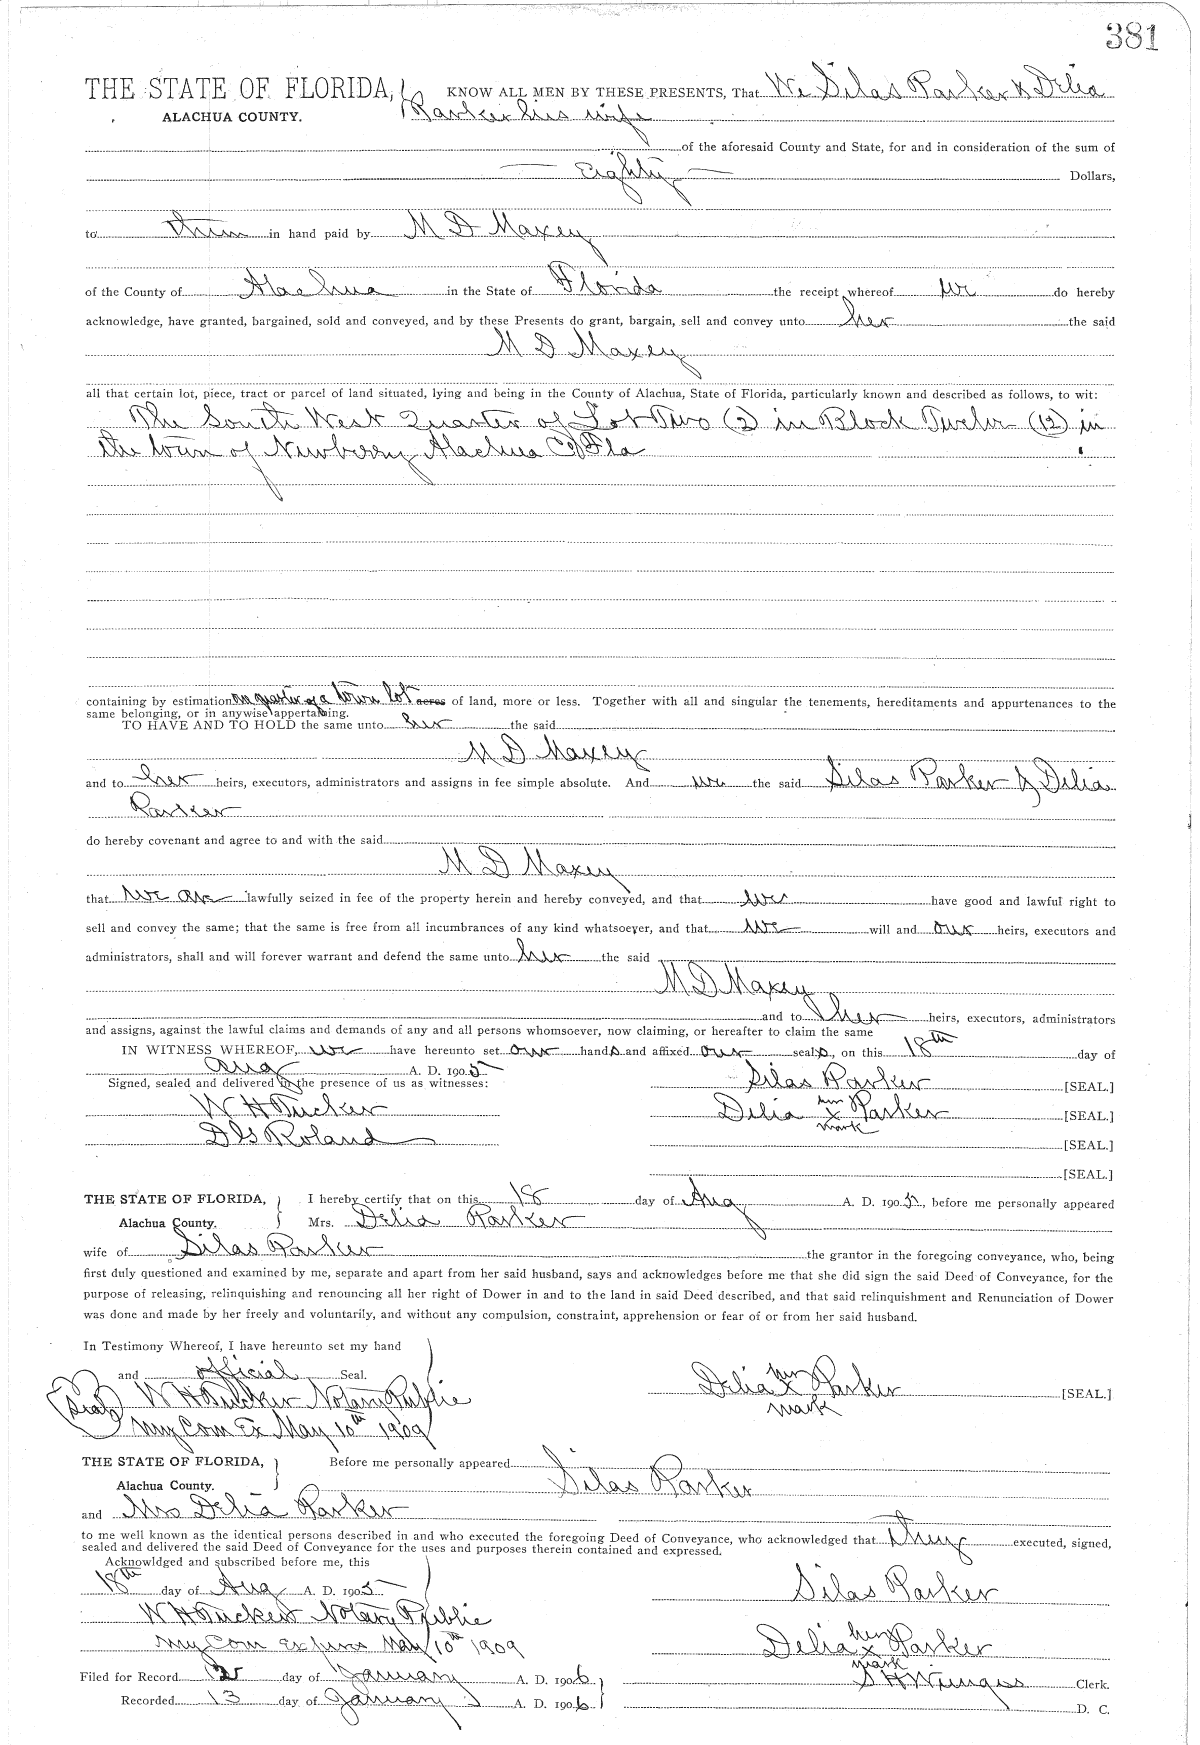 381
THE STATE OF FLORIDA, KNOW ALL MEN BY THESE PRESENTS, That We Silas Parker & Delia
ALACHUA COUNTY. Parker his wife
of the aforesaid County and State, for and in consideration of the sum of
Eighty Dollars,
to them in hand paid by M D Maxey
of the County of Alachua in the State of Florida the receipt whereof we do hereby
acknowledge, have granted, bargained, sold and conveyed, and by these Presents do grant, bargain, sell and convey unto her the said
M D Maxey
all that certain lot, piece, tract or parcel of land situated, lying and being in the County of Alachua, State of Florida, particularly known and described as follows, to wit:
The South West Quarter of Lot Two (2) in Block Twelve (12) in
the town of Newberry Alachua Co Fla
containing by estimation one quarter of a town lot acres of land, more or less. Together with all and singular the tenements, hereditaments and appurtenances to the
same belonging, or in anywise appertaining.
TO HAVE AND TO HOLD the same unto her the said
M D Maxey
and to her heirs, executors, administrators and assigns in fee simple absolute. And we the said Silas Parker & Delia
Parker
do hereby covenant and agree to and with the said
M D Maxey
that we are lawfully seized in fee of the property herein and hereby conveyed, and that we have good and lawful right to
sell and convey the same; that the same is free from all incumbrances of any kind whatsoever, and that we will and our heirs, executors and
administrators, shall and will forever warrant and defend the same unto her the said
M D Maxey
and to her heirs, executors, administrators
and assigns, against the lawful claims and demands of any and all persons whomsoever, now claiming, or hereafter to claim the same
IN WITNESS WHEREOF, we have hereunto set our hands and affixed our seals, on this 18th day of
Aug A. D. 1905
Signed, sealed and delivered in the presence of us as witnesses: Silas Parker [SEAL.]
W H Tucker Delia her x mark Parker [SEAL.]
Roland [SEAL.]
[SEAL.]
THE STATE OF FLORIDA, I hereby certify that on this 18 day of Aug A. D. 1905, before me personally appeared
Alachua County. Mrs. Delia Parker
wife of Silas Parker the grantor in the foregoing conveyance, who, being
first duly questioned and examined by me, separate and apart from her said husband, says and acknowledges before me that she did sign the said Deed of Conveyance, for the
purpose of releasing, relinquishing and renouncing all her right of Dower in and to the land in said Deed described, and that said relinquishment and Renunciation of Dower
was done and made by her freely and voluntarily, and without any compulsion, constraint, apprehension or fear of or from her said husband.
In Testimony Whereof, I have hereunto set my hand
and official Seal.
Seal W H Tucker Notary Public Delia her x mark Parker [SEAL.]
My Com Ex May 10th 1909
THE STATE OF FLORIDA, Before me personally appeared
Alachua County. Silas Parker
and Mrs Delia Parker
to me well known as the identical persons described in and who executed the foregoing Deed of Conveyance, who acknowledged that they executed, signed,
sealed and delivered the said Deed of Conveyance for the uses and purposes therein contained and expressed.
Acknowldged and subscribed before me, this
18th day of Aug A. D. 1905 Silas Parker
W H Tucker Notary Public
My Com Expires May 10th 1909 Delia her x mark Parker
Filed for Record 12 day of January A. D. 1906 S H Wienges Clerk.
Recorded 13 day of January A. D. 1906 D. C.